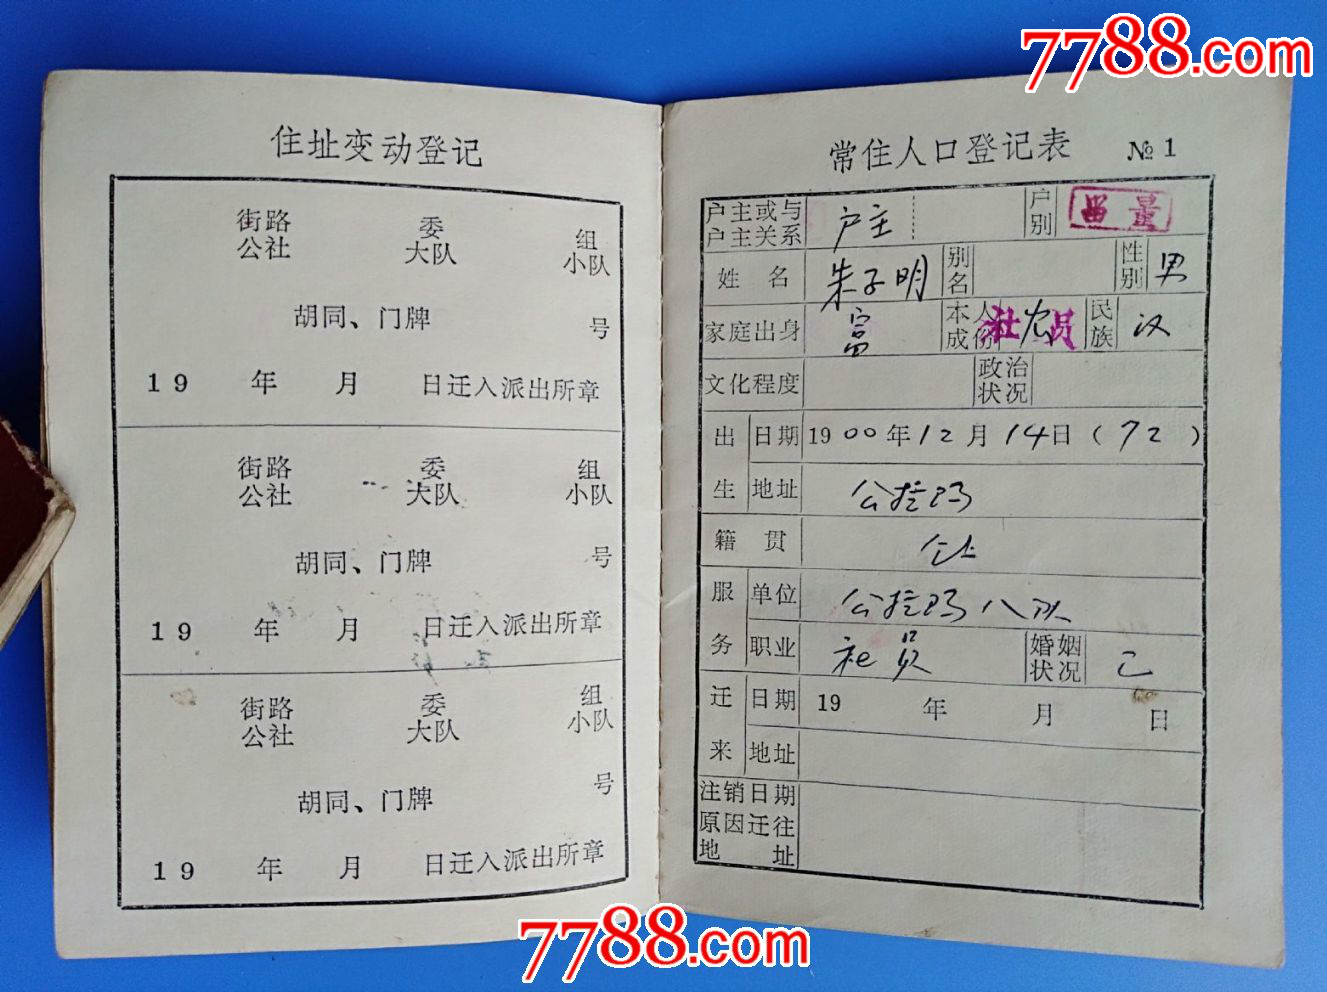 7788.com
住址变动登记
街路 委 组
公社 大队 小队
胡同、门牌 号
19 年 月 日迁入派出所章
街路 委 组
公社 大队 小队
胡同、门牌 号
19 年 月 日迁入派出所章
街路 委 组
公社 大队 小队
胡同、门牌 号
19 年 月 日迁入派出所章
常住人口登记表 №1
户主或与户主关系 户主 户别
姓名 朱子明 别名 性别 男
家庭出身 富 本人成份 社员 民族 汉
文化程度 政治状况
出生 日期 1900年12月14日(72)
地址 公拉玛
籍贯 仝上
服务 单位 公拉玛八队
职业 社员 婚姻状况 已
迁来 日期 19 年 月 日
地址
注销日期
原因迁往
地址
7788.com